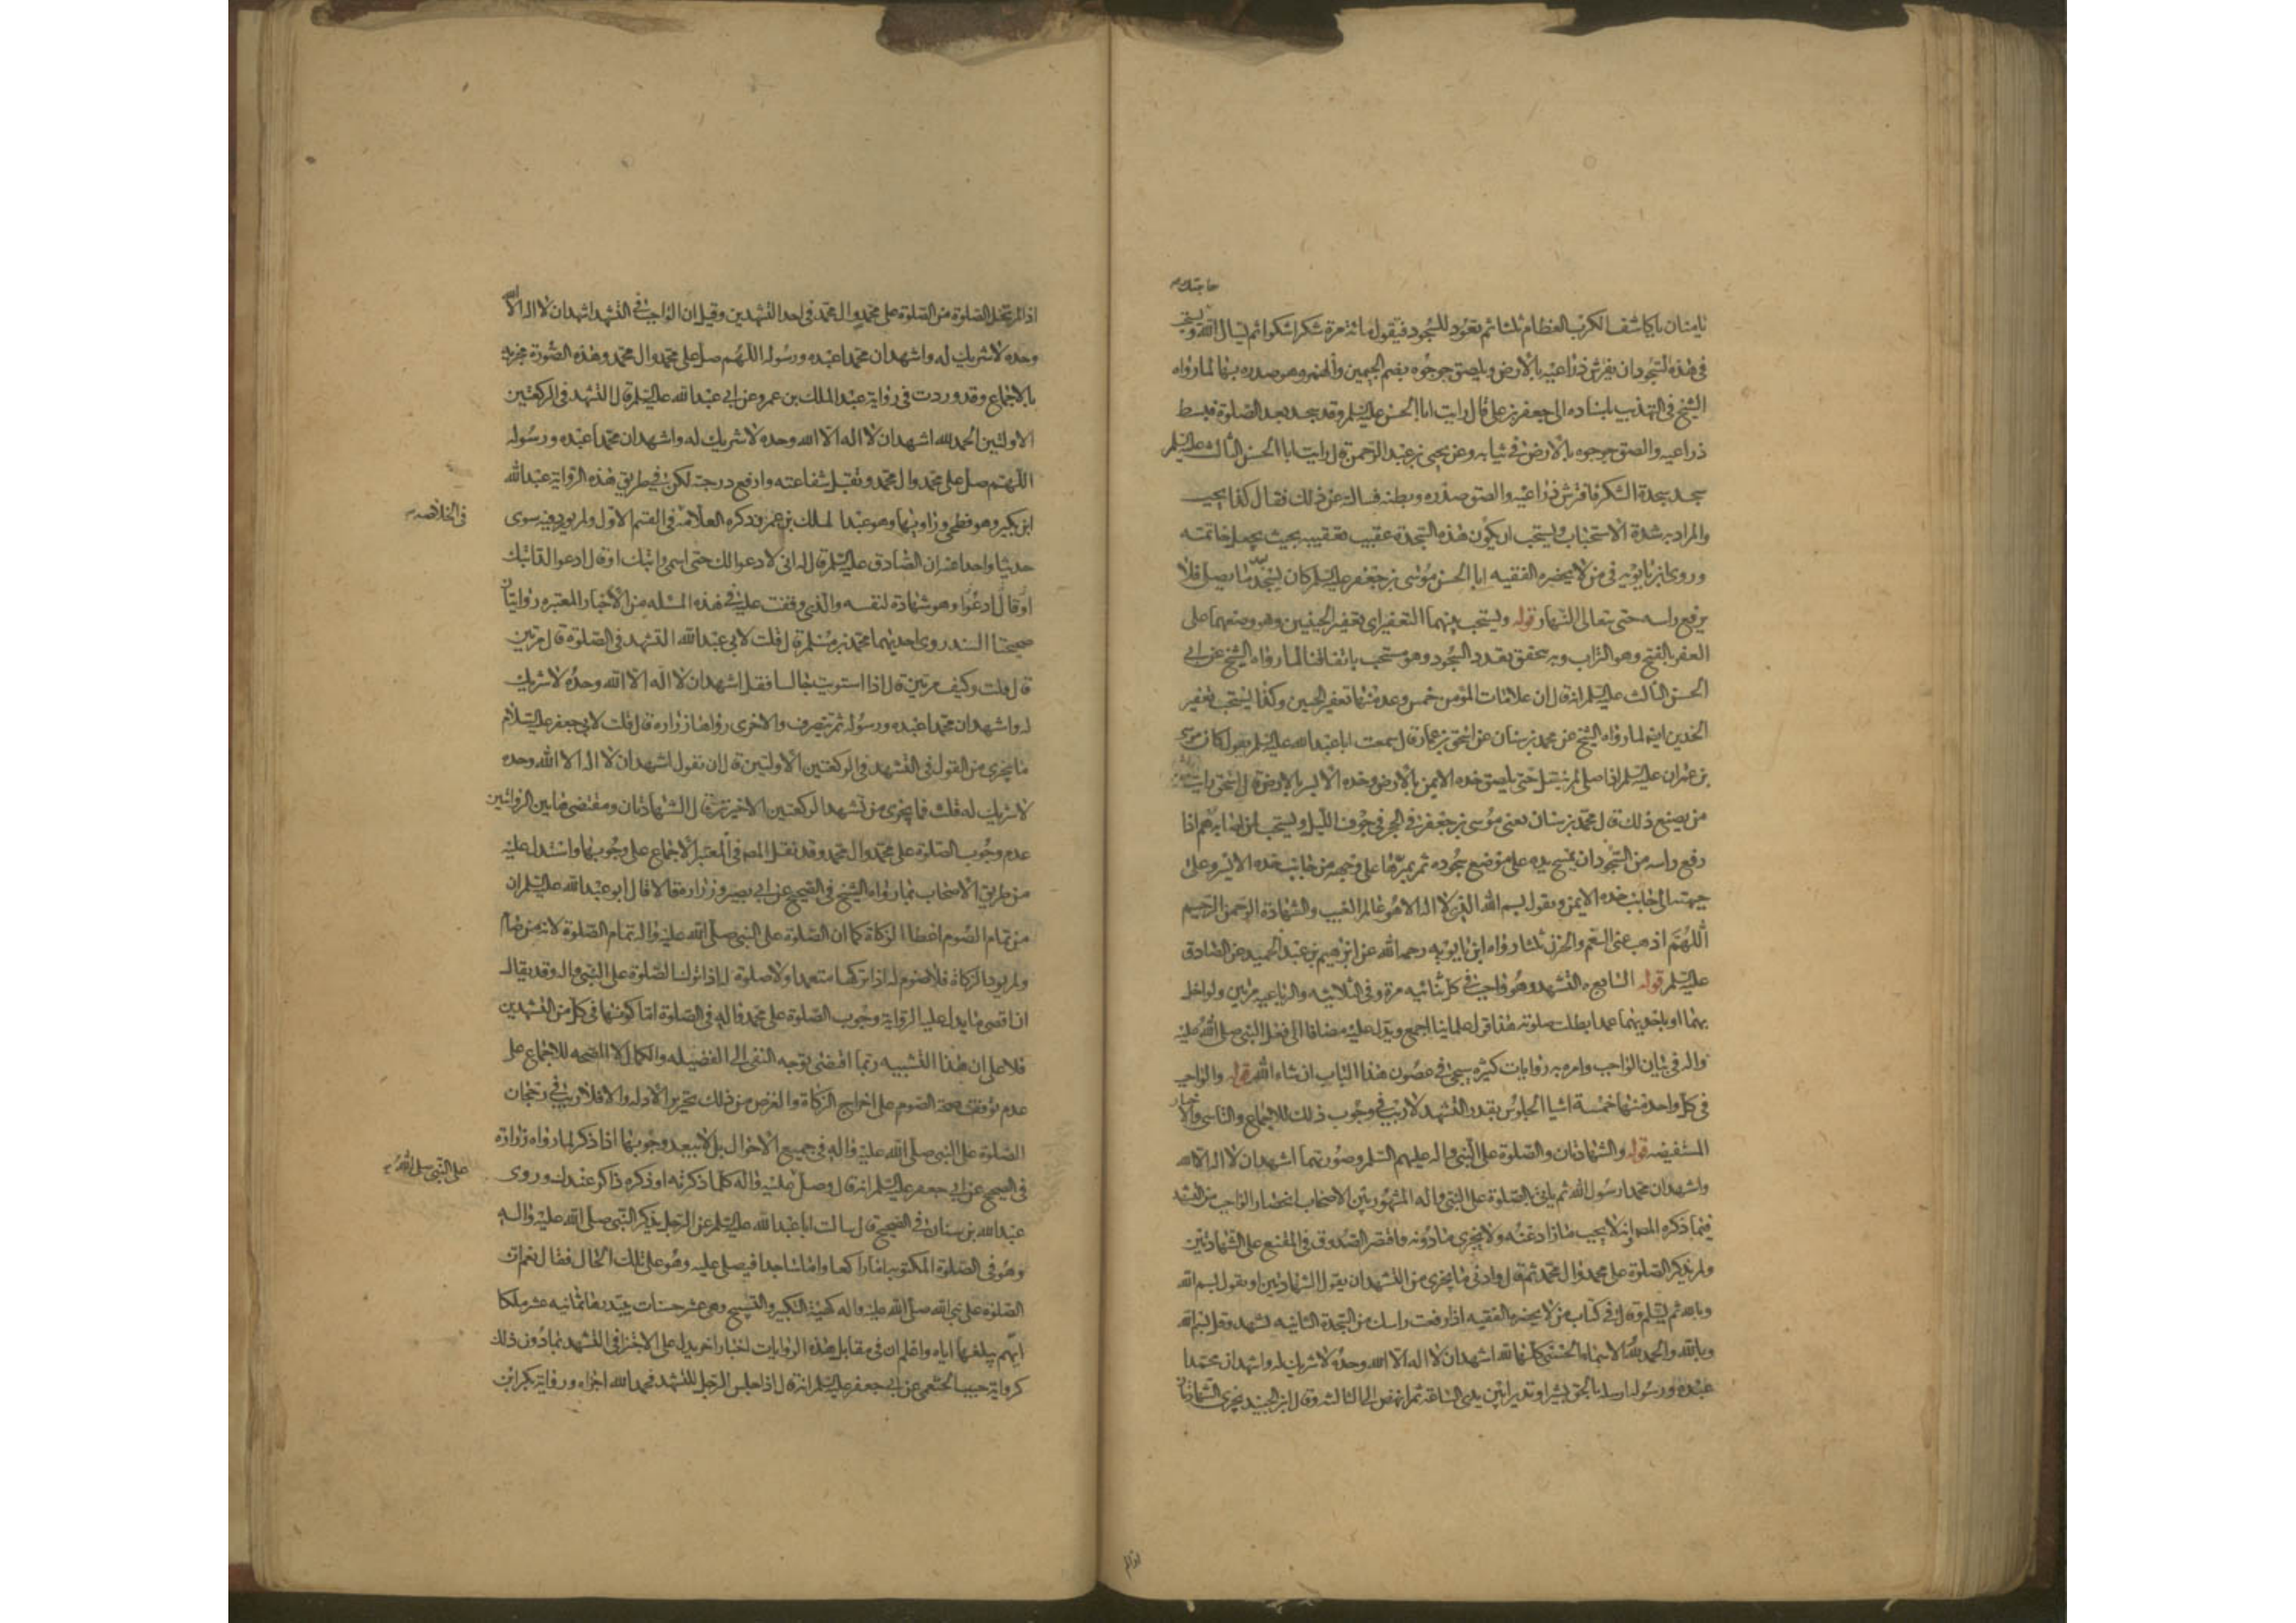 حاجتك
يا منان يا كاشف الكرب العظام ثلثا ثم تعود للسجود فتقول مائة مرة شكرا شكرا ثم تسال الله ويستحب
في هذه السجود ان يفرش ذراعيه بالارض ويلصق جوجوه بضم الجيمين والهمز وهو صدره بها لما رواه
الشيخ في التهذيب باسناده الى جعفر بن علي قال رايت ابا الحسن عليه السلم وقد سجد بعد الصلوة فبسط
ذراعيه والصق جوجوه بالارض في ثيابه وعن يحيى بن عبد الرحمن قال رايت ابا الحسن الثالث عليه السلم
سجد سجدة الشكر فافترش ذراعيه والصق صدره وبطنه فسالته عن ذلك فقال كذا يجب
والمراد به شدة الاستحباب ويستحب ان يكون هذه السجدة عقيب تعقيبه بحيث يجعل خاتمته
وروى ابن بابويه في من لا يحضره الفقيه ابا الحسن موسى بن جعفر عليه السلم كان يسجد بعد ما يصلي فلا
يرفع راسه حتى يتعالى النهار قوله ويستحب بينهما التعفير اي تعفير الجبينين وهو وضعهما على
العفر بالفتح وهو التراب وبه يتحقق تعدد السجود وهو مستحب باتفاقنا لما رواه الشيخ عن ابي
الحسن الثالث عليه السلم انه قال ان علامات المؤمن خمس وعد منها تعفير الجبين وكذا يستحب تعفير
الخدين ايضا لما رواه الشيخ عن محمد بن سنان عن اسحق بن عمار قال سمعت ابا عبد الله عليه السلم يقول كان موسى
بن عمران عليه السلم اذا صلى لم ينتقل حتى يلصق خده الايمن بالارض وخده الايسر بالارض قال اسحق رايت
من يصنع ذلك قال محمد بن سنان يعني موسى بن جعفر في الحجر في جوف الليل ويستحب لمن اصابه هم اذا
رفع راسه من السجود ان يمسح يده على موضع سجوده ثم يمرها على وجهه من جانب خده الايسر وعلى
جبهته الى جانب خده الايمن ويقول بسم الله الذي لا اله الا هو عالم الغيب والشهادة الرحمن الرحيم
اللهم اذهب عني الغم والحزن ثلثا رواه ابن بابويه رحمه الله عن ابرهيم بن عبد الحميد عن الصادق
عليه السلم قوله السابع التشهد وهو واجب في كل ثنائيه مرة وفي الثلاثيه والرباعيه مرتين ولو اخل
بهما او باحديهما عمدا بطلت صلوته هذا قول علمائنا اجمع ويدل عليه مضافا الى فعل النبي صلى الله عليه
واله في بيان الواجب وامره به روايات كثيره سيجئ في غضون هذا الباب ان شاء الله قوله والواجب
في كل واحدة منهما خمسة اشيا الجلوس بقدر التشهد لا ريب في وجوب ذلك للاجماع والتاسي والاخبار
المستفيضه قوله والشهادتان والصلوة على النبي واله عليهم السلم وصورتهما اشهد ان لا اله الا الله
واشهد ان محمدا رسول الله ثم ياتي بالصلوة على النبي واله المشهور بين الاصحاب انحصار الواجب من التشهد
فيما ذكره المصـ وانه لا يجب ما زاد عنه ولا يجزي ما دونه واقتصر الصدوق في المقنع على الشهادتين
ولم يذكر الصلوة على محمد وال محمد ثم قال وادنى ما يجزي من التشهد ان يقول الشهادتين او يقول بسم الله
وبالله ثم يسلم وقال في كتاب من لا يحضره الفقيه اذا رفعت راسك من السجدة الثانيه تشهد وقل بسم الله
وبالله والحمد لله والاسماء الحسنى كلها لله اشهد ان لا اله الا الله وحده لا شريك له واشهد ان محمدا
عبده ورسوله ارسله بالحق بشيرا ونذيرا بين يدي الساعة ثم انهض الى الثالثه وقال ابن الجنيد يجزي الشهادتان
اذا لم
اذا لم تخل الصلوة من الصلوة على محمد وال محمد في احد التشهدين وقيل ان الواجب في التشهد اشهد ان لا اله الا الله
وحده لا شريك له واشهد ان محمدا عبده ورسوله اللهم صل على محمد وال محمد وهذه الصورة مجزية
بالاجماع وقد وردت في رواية عبد الملك بن عمرو عن ابي عبد الله عليه السلم قال التشهد في الركعتين
الاولتين الحمد لله اشهد ان لا اله الا الله وحده لا شريك له واشهد ان محمدا عبده ورسوله
اللهم صل على محمد وال محمد وتقبل شفاعته وارفع درجته لكن في طريق هذه الرواية عبد الله
ابن بكير وهو فطحي وراويها وهو عبد الملك بن عمرو ذكره العلامة في القسم الاول ولم يورد فيه سوى
في الخلاصه
حديثا واحدا عنه ان الصادق عليه السلم قال له اني لادعو الله لك حتى اسمي دابتك او قال ادعو لدابتك
او قال ادعوا وهو شهادة لنفسه والذي وقفت عليه في هذه المسئله من الاخبار المعتبره روايتان
صحيحتا السند روى احديهما محمد بن مسلم قال قلت لابي عبد الله التشهد في الصلوة قال مرتين
قال قلت وكيف مرتين قال اذا استويت جالسا فقل اشهد ان لا اله الا الله وحده لا شريك
له واشهد ان محمدا عبده ورسوله ثم تنصرف والاخرى رواها زراره قال قلت لابي جعفر عليه السلام
ما يجزي من القول في التشهد في الركعتين الاولتين قال ان تقول اشهد ان لا اله الا الله وحده
لا شريك له قلت فما يجزي من تشهد الركعتين الاخيرتين قال الشهادتان ومقتضى هاتين الروايتين
عدم وجوب الصلوة على محمد وال محمد وقد نقل المصـ في المعتبر الاجماع على وجوبها واستدل عليه
من طريق الاصحاب بما رواه الشيخ في الصحيح عن ابي بصير وزراره قالا قال ابو عبد الله عليه السلم ان
من تمام الصوم اعطا الزكاة كما ان الصلوة على النبي صلى الله عليه واله تمام الصلوة لانه من صام
ولم يود الزكاة فلا صوم له اذا تركها متعمدا ولا صلوة له اذا ترك الصلوة على النبي واله وقد يقال
ان اقصى ما يدل عليه الرواية وجوب الصلوة على محمد واله في الصلوة اما كونها في كل من التشهدين
فلا على ان هذا التشبيه ربما اقتضى توجه النفي الى الفضيله والكمال لا الصحه للاجماع على
عدم توقف صحة الصوم على اخراج الزكاة والغرض من ذلك تحرير الادله والا فلا ريب في رجحان
الصلوة على النبي صلى الله عليه واله في جميع الاحوال بل لا يبعد وجوبها اذا ذكر لما رواه زرارة
في الصحيح عن ابي جعفر عليه السلم انه قال وصل عليه واله كلما ذكرته او ذكره ذاكر عندك وروى
على النبي صلى الله
عبد الله بن سنان في الصحيح قال سالت ابا عبد الله عليه السلم عن الرجل يذكر النبي صلى الله عليه واله
وهو في الصلوة المكتوبه اما راكعا واما ساجدا فيصلي عليه وهو على تلك الحال فقال نعم ان
الصلوة على نبي الله صلى الله عليه واله كهيئة التكبير والتسبيح وهي عشر حسنات يبتدرها ثمانيه عشر ملكا
ايهم يبلغها اياه واعلم ان في مقابل هذه الروايات اخبارا اخر يدل على الاجتزا في التشهد بما دون ذلك
كرواية حبيب الخثعمي عن ابي جعفر عليه السلم انه قال اذا جلس الرجل للتشهد فحمد الله اجزاه ورواية بكر ابن